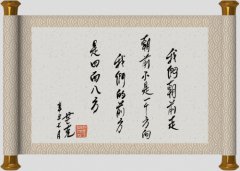 我们朝前走
朝前不是一个方向
我们的前方
是四面八方